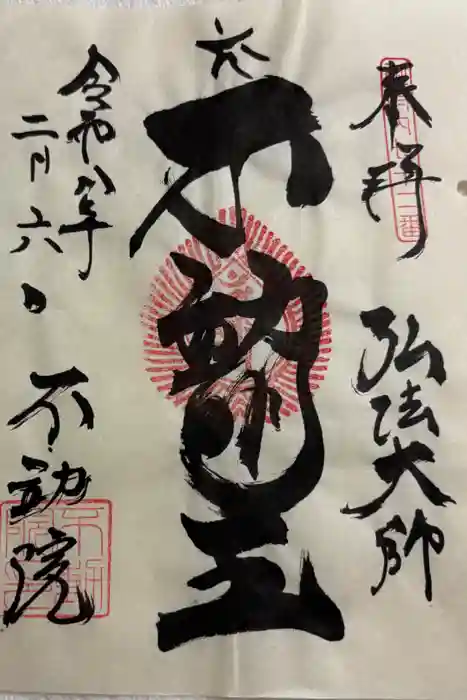 奉拝
弘法大師
不動明王
令和八年
二月六日
不動院